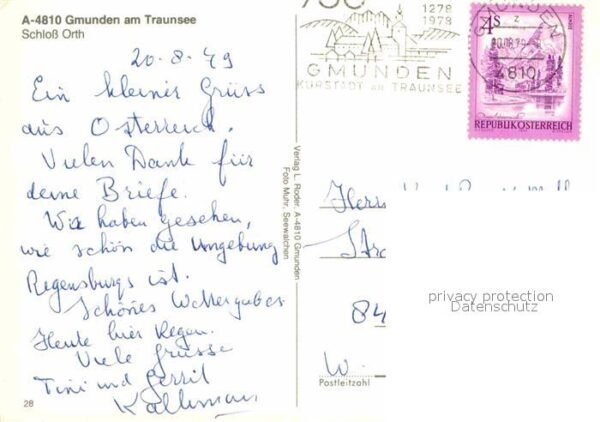 A-4810 Gmunden am Traunsee
Schloß Orth
20-8-79
Ein kleiner Gruss
aus Österreich.
Vielen Dank für
deine Briefe.
Wir haben gesehen,
wie schön die Umgebung
Regensburgs ist.
Schönes Wetter
Heute hier Regen.
Viele Grüsse
Tini und Gerrit
28
Verlag L. Röder, A-4810 Gmunden
Foto Muhr, Seewalchen
750
1278
1978
GMUNDEN
KURSTADT AM TRAUNSEE
GMUNDEN
4810
4S
REPUBLIK ÖSTERREICH
Herrn
84
W.
Postleitzahl
privacy protection
Datenschutz